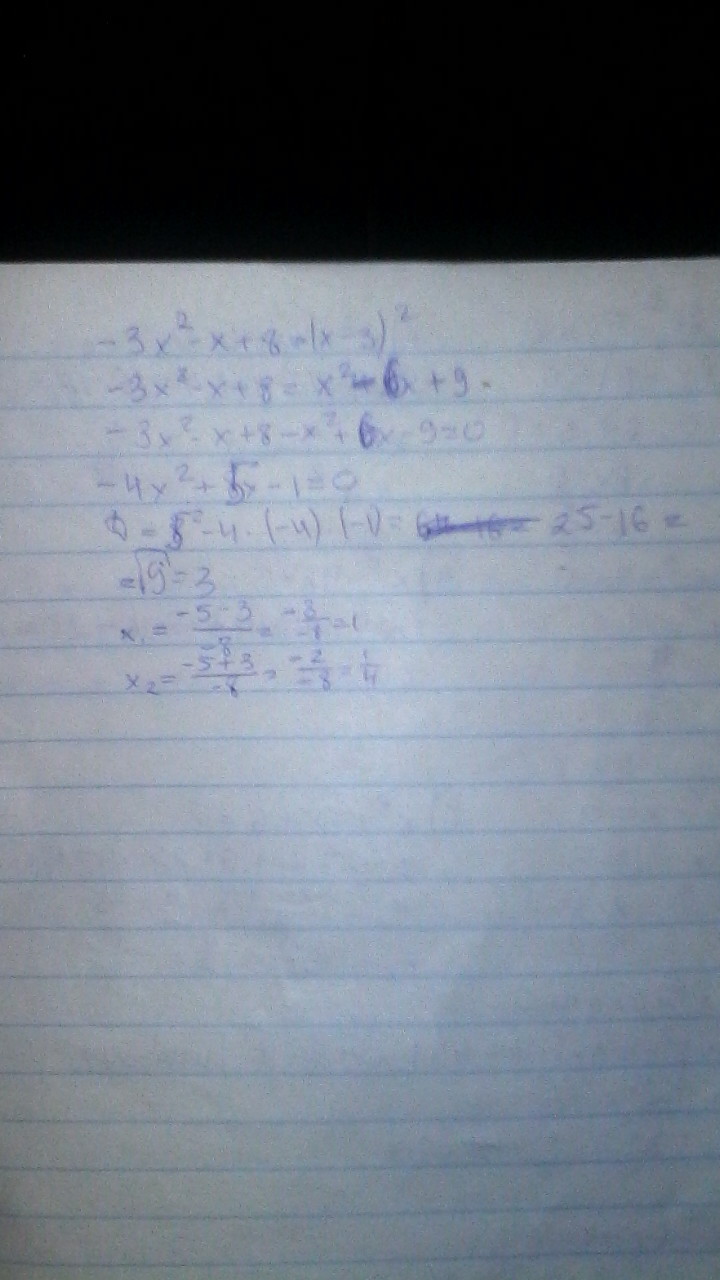 -3x²-x+8=(x-3)²
-3x²-x+8= x²-6x+9
-3x²-x+8-x²+6x-9=0
-4x²+5x-1=0
D=5²-4·(-4)·(-1)= 25-16=
=√9=3
x₁=\frac{-5-3}{-8}=\frac{-8}{-8}=1
x₂=\frac{-5+3}{-8}=\frac{-2}{-8}=\frac{1}{4}